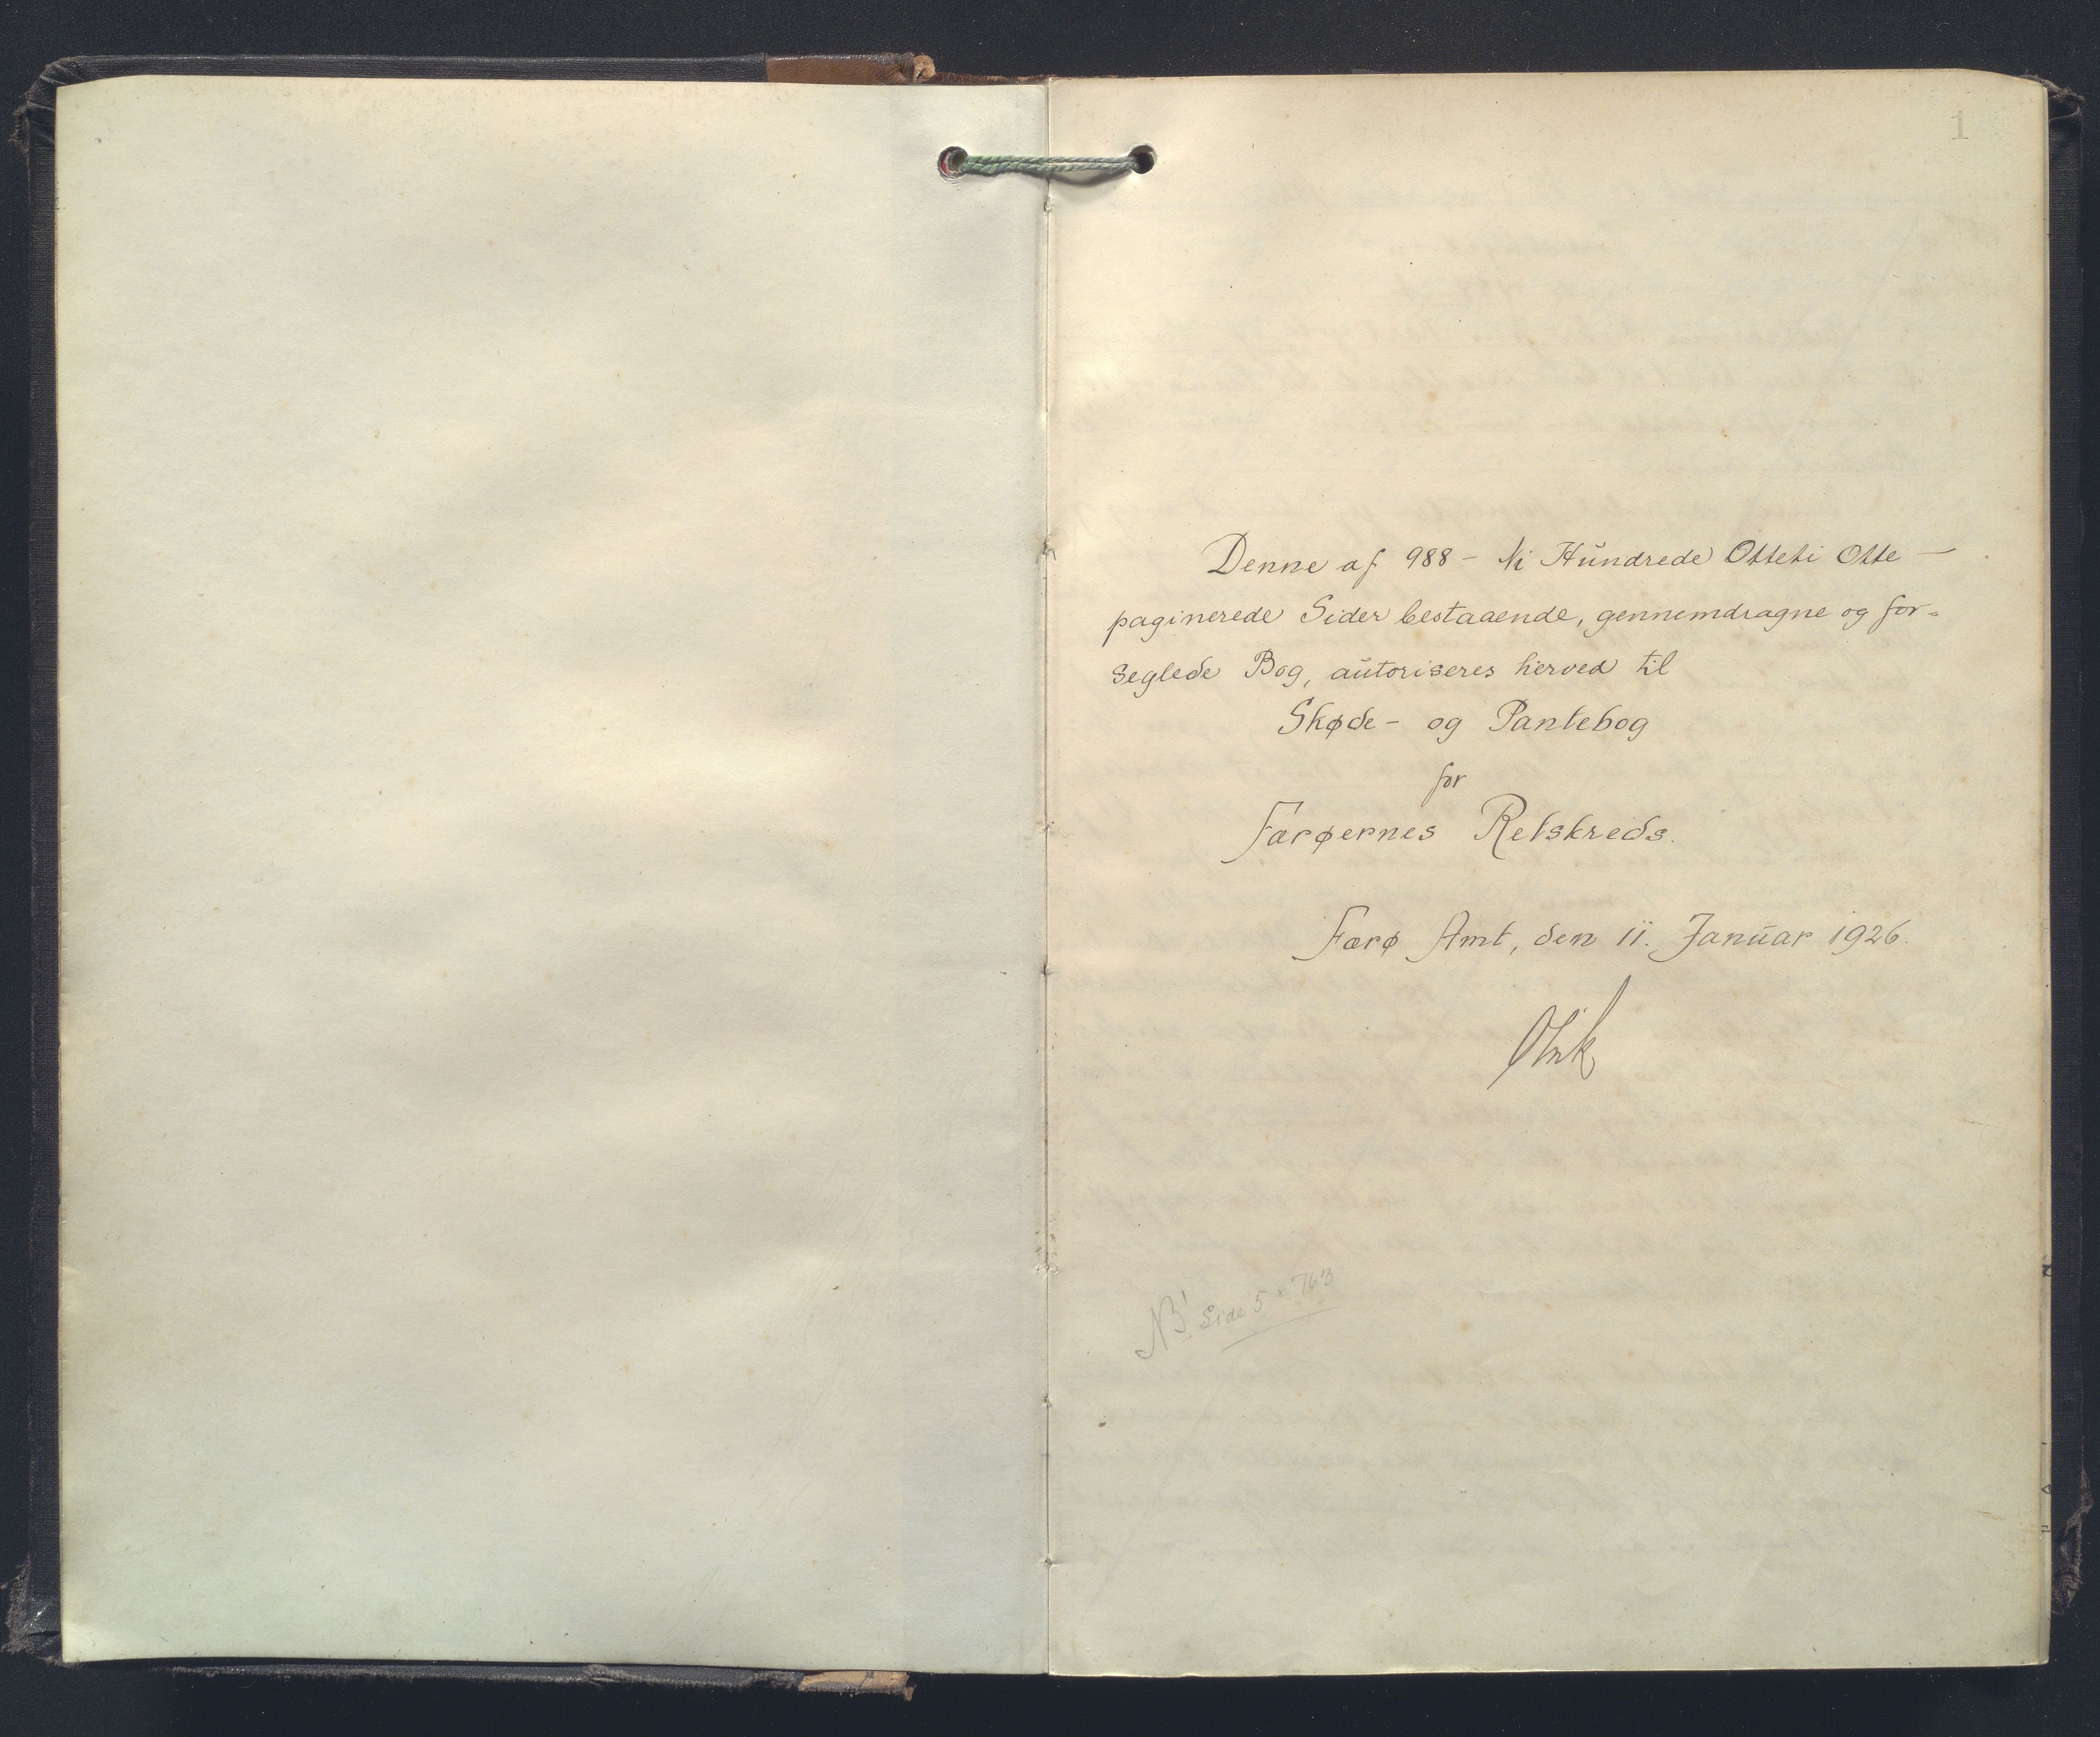 1
Denne af 988 - Ni Hundrede Otteti Otte -
paginerede Sider bestaaende, gennemdragne og for-
seglede Bog, autoriseres herved til
Skøde- og Pantebog
for
Færøernes Retskreds.
Færø Amt, den 11. Januar 1926.
NB! Side 5 × 763